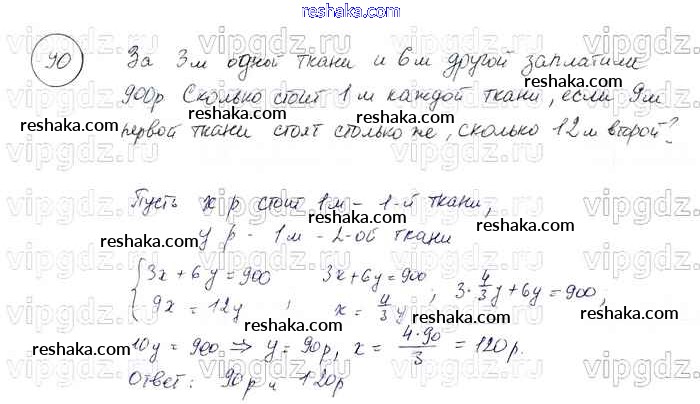 reshaka.com
90 За 3м одной ткани и 6м другой заплатили
900р Сколько стоит 1м каждой ткани, если 9м
первой ткани стоят столько же, сколько 12м второй?
Пусть x р стоит 1м - 1-й ткани,
y р - 1м - 2-ой ткани
{3x+6y=900 3x+6y=900
9x=12y ; x=4/3y ; 3·4/3y+6y=900;
10y=900 ⇒ y=90р, x=4·90/3=120р.
Ответ: 90р и 120р
vipgdz.ru
reshaka.com